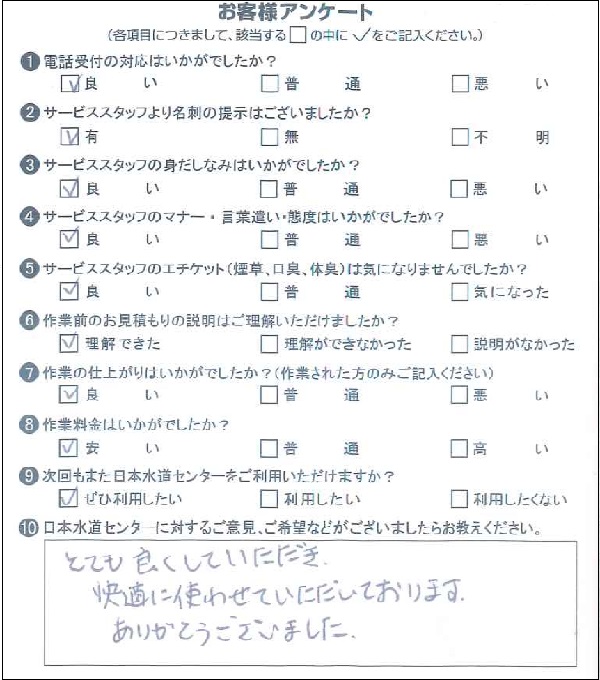 お客様アンケート
(各項目につきまして、該当する□の中に✓をご記入ください。)
❶電話受付の対応はいかがでしたか?
☑良い □普通 □悪い
❷サービススタッフより名刺の提示はございましたか?
☑有 □無 □不明
❸サービススタッフの身だしなみはいかがでしたか?
☑良い □普通 □悪い
❹サービススタッフのマナー・言葉遣い・態度はいかがでしたか?
☑良い □普通 □悪い
❺サービススタッフのエチケット(煙草、口臭、体臭)は気になりませんでしたか?
☑良い □普通 □気になった
❻作業前のお見積もりの説明はご理解いただけましたか?
☑理解できた □理解ができなかった □説明がなかった
❼作業の仕上がりはいかがでしたか?(作業された方のみご記入ください)
☑良い □普通 □悪い
❽作業料金はいかがでしたか?
☑安い □普通 □高い
❾次回もまた日本水道センターをご利用いただけますか?
☑ぜひ利用したい □利用したい □利用したくない
❿日本水道センターに対するご意見、ご希望などがございましたらお教えください。
とても良くしていただき、
快適に使わせていただいております。
ありがとうございました。